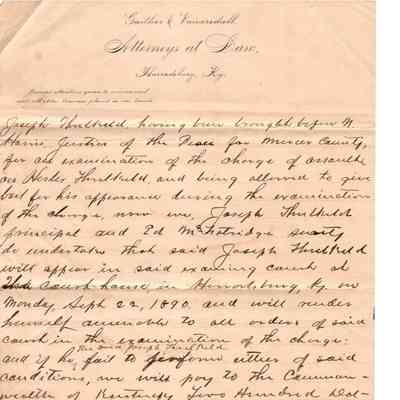 Gaither & Vanarsdall
Attorneys at Law,
Harrodsburg, Ky.
Prompt attention given to commercial
and all other business placed in our hands.
Joseph Threlkeld, having been brought before N.
Harris, Justice of the Peace for Mercer County,
for an examination of the charge of assault
on Hester Threlkeld, and being allowed to give
bail for his appearance during the examination
of the charge, now we, Joseph Threlkeld
principal and Ed McFatridge surety
do undertake that said Joseph Threlkeld
will appear in said examining court at
the court house in Harrodsburg, Ky on
Monday, Sept 22, 1890, and will render
himself amenable to all orders of said
court in the examination of the charge:
and if he, the said Joseph Threlkeld fail to perform either of said
conditions, we will pay to the Common-
wealth of Kentucky Two Hundred Dol-